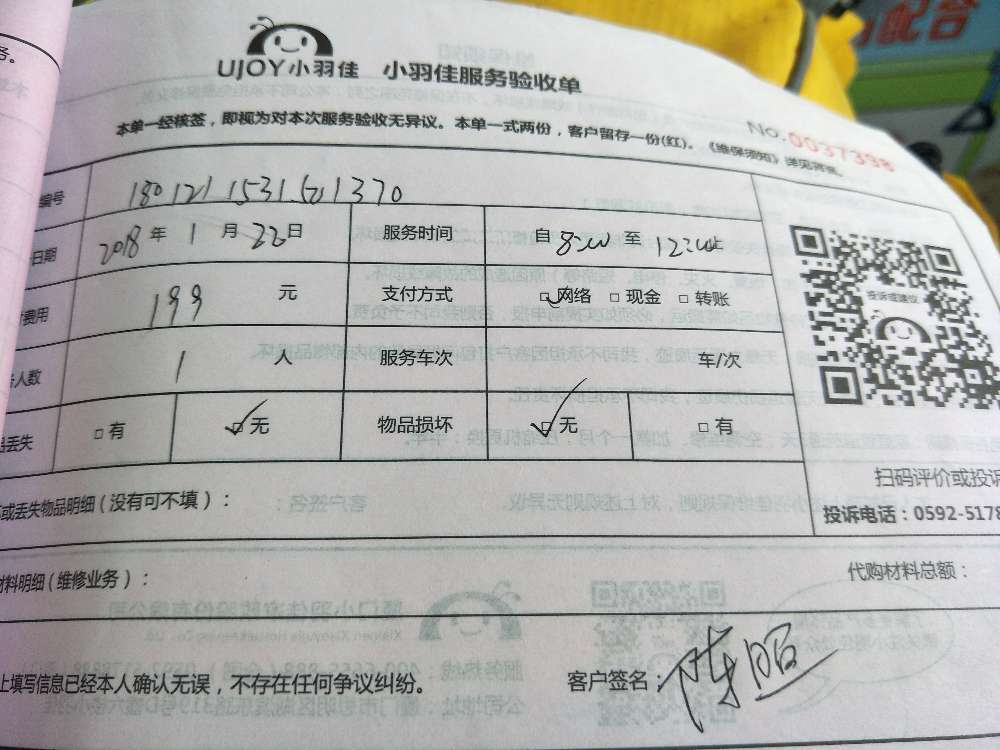 配合
UJOY小羽佳 小羽佳服务验收单
本单一经核签，即视为对本次服务验收无异议。本单一式两份，客户留存一份(红)。《维保须知》详见背页。
No.0037398
编号
日期 2018 年 1 月 22 日 服务时间 自 8:00 至 12:00止
费用 199 元 支付方式 □网络 □现金 □转账
人数 1 人 服务车次 车/次
丢失 □有 □无 物品损坏 □无 □有
投诉或建议
扫码评价或投诉
投诉电话：0592-5178
或丢失物品明细(没有可不填)：
材料明细(维修业务)： 代购材料总额：
上填写信息已经本人确认无误，不存在任何争议纠纷。 客户签名：陈照